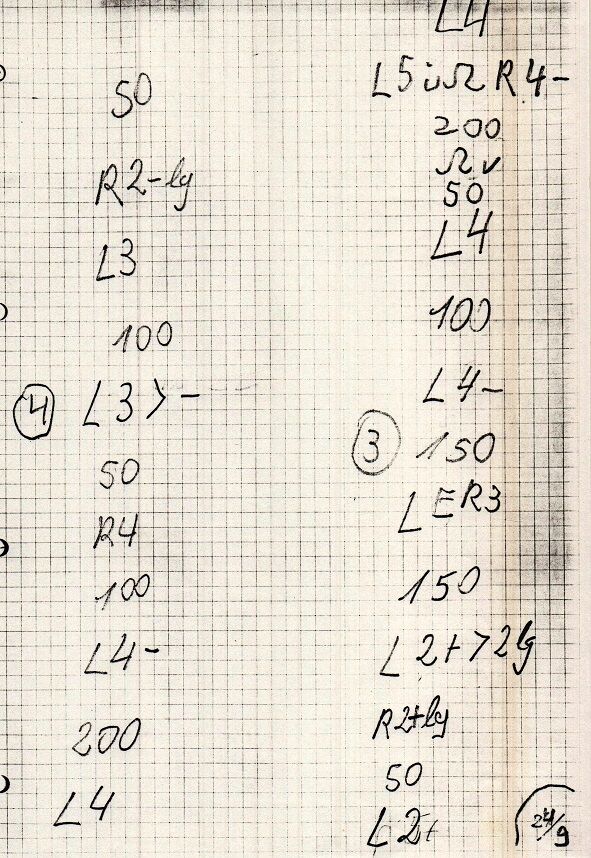 50
R2-lg
L3
100
4 L3>-
50
R4
100
L4-
200
L4
L4
L5 üΩ R4-
200
Ωv
50
L4
100
L4-
3 150
LER3
150
L2+>2lg
R2+lg
50
L2+
24/9